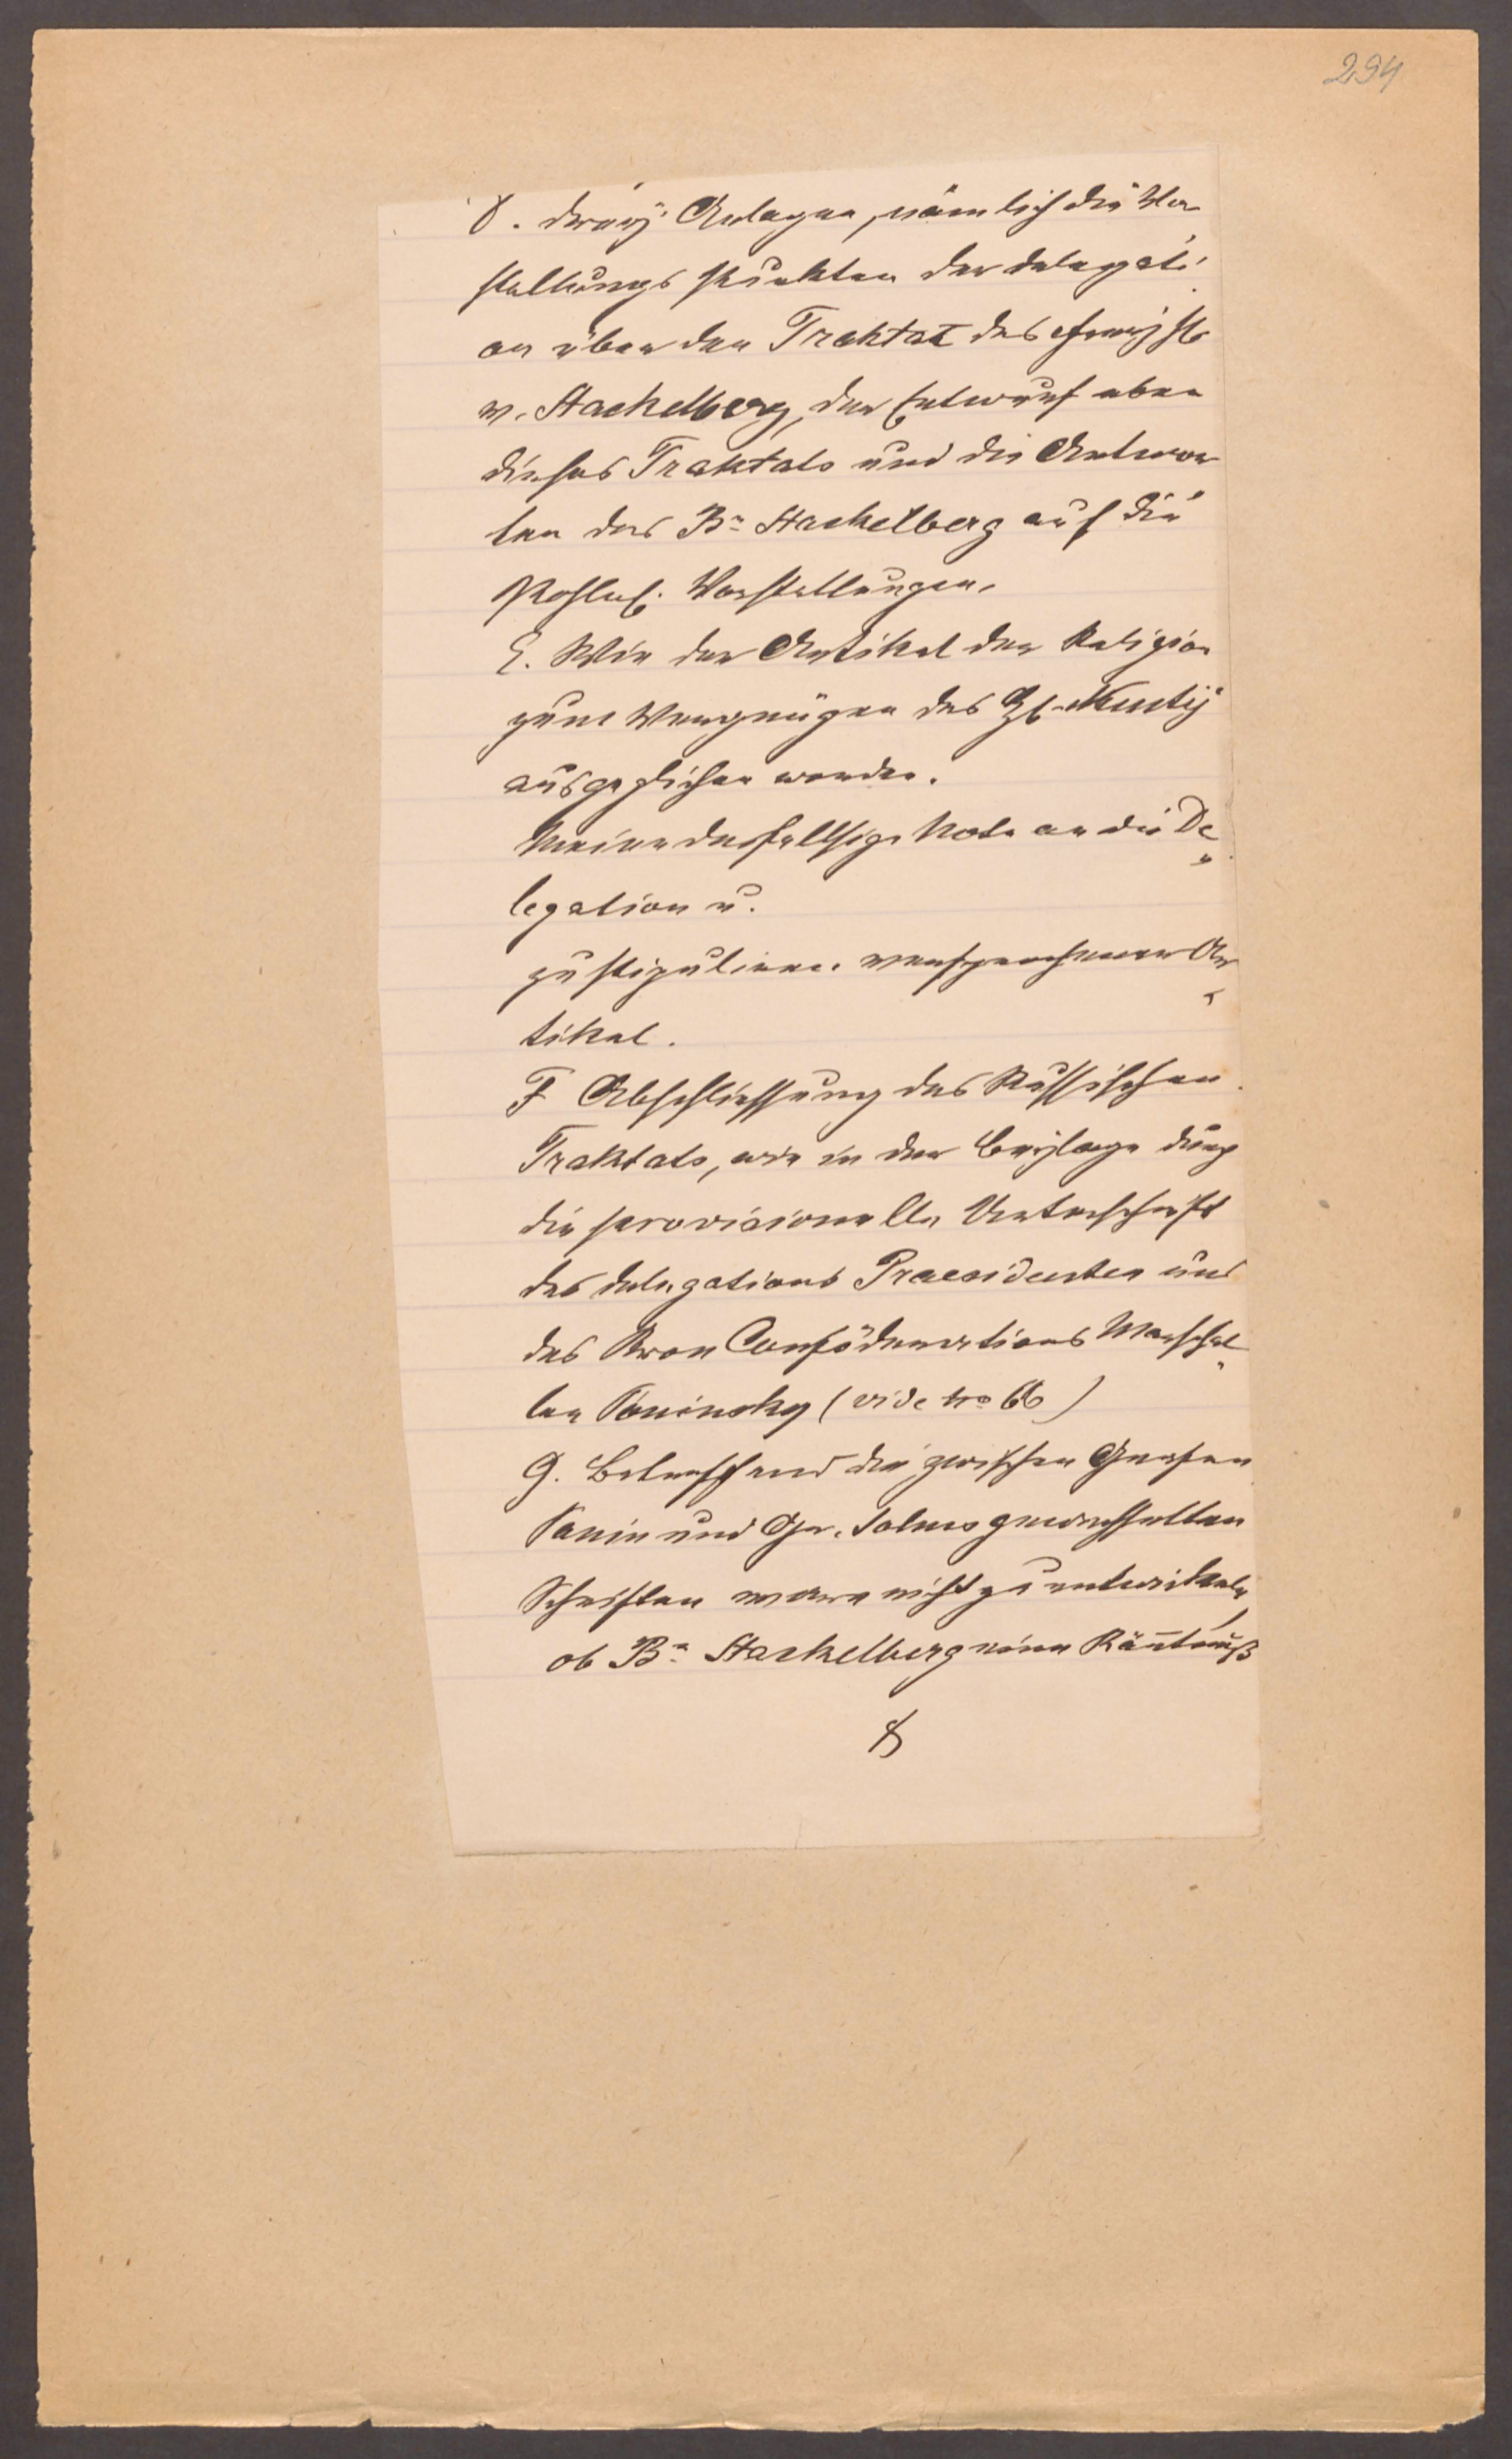 294
D. drey Anlagen, nämlich die Vor
stellungs Punkten der delegati
on über den Traktat des Freyh
v. Stackelberg, der Entwurf eben
dieses Traktats und die Antwor
ten des Bn Stackelberg auf die
Vorstellungen.
E. Wie der Artikel der Religion
zum Vergnügen des H. Nuntij
ausgeglichen worden.
Meine desfallsige Note an die De
legation u.
zu stipuliren versprochener Ar
tikel.
F Abschliessung des Russischen
Traktats, wie in der Beylage durch
die provisionelle Unterschrift
des delegations Praesidenten und
des Kron Conföderations Marschal
len Poninsky (vide no 66)
G. Betreffend die zwischen Grafen
Panin und Gr. Solms gewechselten
Schriften ware nicht zu entwikeln,
ob Bn Stackelberg eine Käntnuß